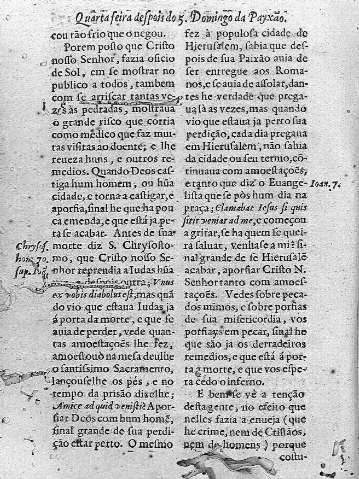 Quarta feira despois do 5. Domingo da Payxão.
cou tão frio que o negou.
Porem posto que Cristo
nosso Senhor, fazia oficio
de Sol, em se mostrar no
publico a todos, tambem
com se arriscar tantas ve-
zes às pedradas, mostraua
o grande risco que corria
como médico que faz mui-
tas visitas ao doente, e lhe
reueza huns, e outros re-
medios. Quando Deos cas-
tiga hum homem, ou hũa
cidade, e torna a castigar, e
aporfia, sinal he que ha pou
ca emenda, e que está ja pe-
ra se acabar. Antes de sua
morte diz S. Chrysosto-
mo, que Cristo nosso Se-
nhor reprendia a Iudas hũa
Chrysost.
hom. 70.
Vnus
ex vobis diabolus est, mas quã
do vio que estaua Iudas ja
á porta da morte, e que se
auia de perder, vede quan-
tas amoestações lhe fez,
amoestouo na mesa deulhe
o santissimo Sacramento,
lançouselhe os pés, e no
tempo da prisão dizlhe;
Amice ad quid venisti? Apor-
fiar Deos com hum homẽ,
sinal grande de sua perdi-
ção estar perto. O mesmo
fez à populosa cidade de
Hierusalem, sabia que des-
pois de sua Paixão auia de
ser entregue aos Roma-
nos, e se auia de assolar, dan-
tes lhe verdade que prega-
ua lá as vezes, mas quando
vio que estaua ja perto sua
perdição, cada dia pregaua
em Hierusalem, não sahia
da cidade ou seu termo, cõ-
tinuaua com amoestações,
e tanto que diz o Euange-
lista que se pòs hum dia na
Ioan. 7.
praça; Clamabat Iesus si quis
sitit veniat ad me, e começou
a gritar, se ha quem se quei-
ra saluar, venhase a mi: si-
nal grande de se Hierusalẽ
acabar, aporfiar Cristo N.
Senhor tanto com amoes-
tações. Vedes sobre peca-
dos mimos, e sobre porfias
de sua misericordia, vos
porfiays em pecar, sinal he
que são ja os derradeiros
remedios, e que está á por-
ta a morte, e que vos espe-
ra cedo o inferno.
E bem se vè a tenção
desta gente, no efeito que
nelles fazia a enueja (que
he crime, nem de Cristãos,
nem de homens) porque
costu-